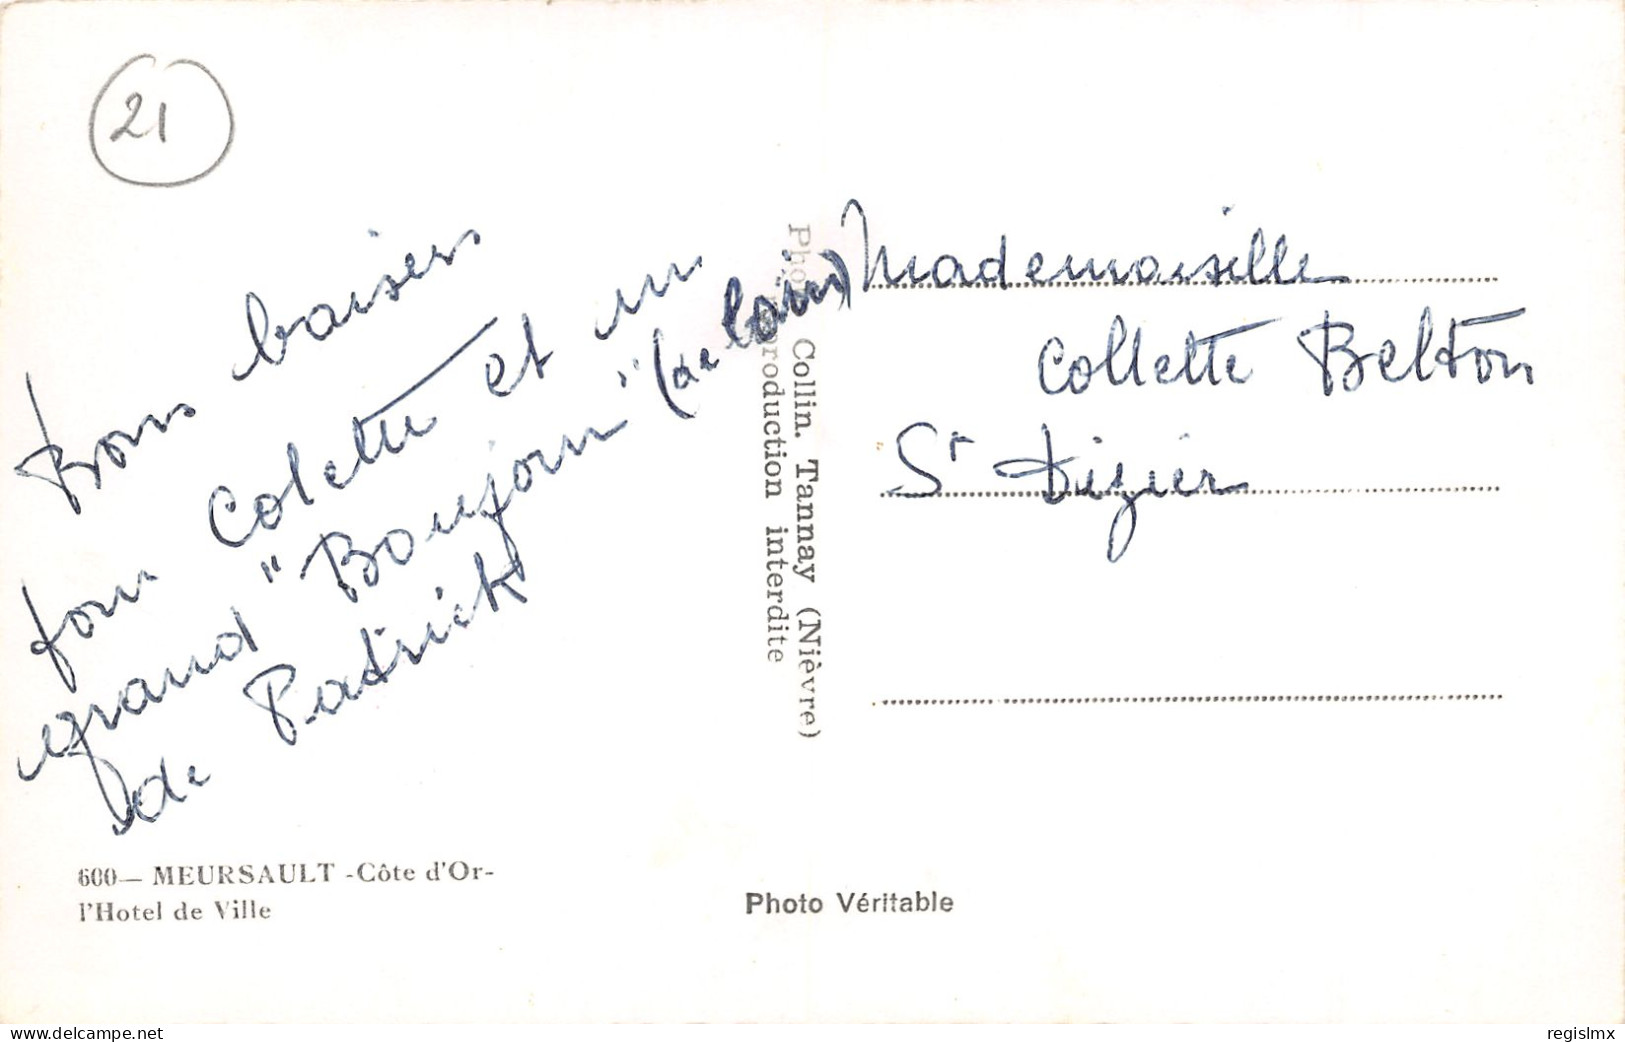 21
Bons baisers
pour Colette et un
grand "Boujour" (de loin)
de Patrick
600— MEURSAULT -Côte d'Or-
l'Hotel de Ville
Photo Collin. Tannay (Nièvre)
Reproduction interdite
Photo Véritable
Mademoiselle
Collette Belton
St Dizier
www.delcampe.net
regislmx